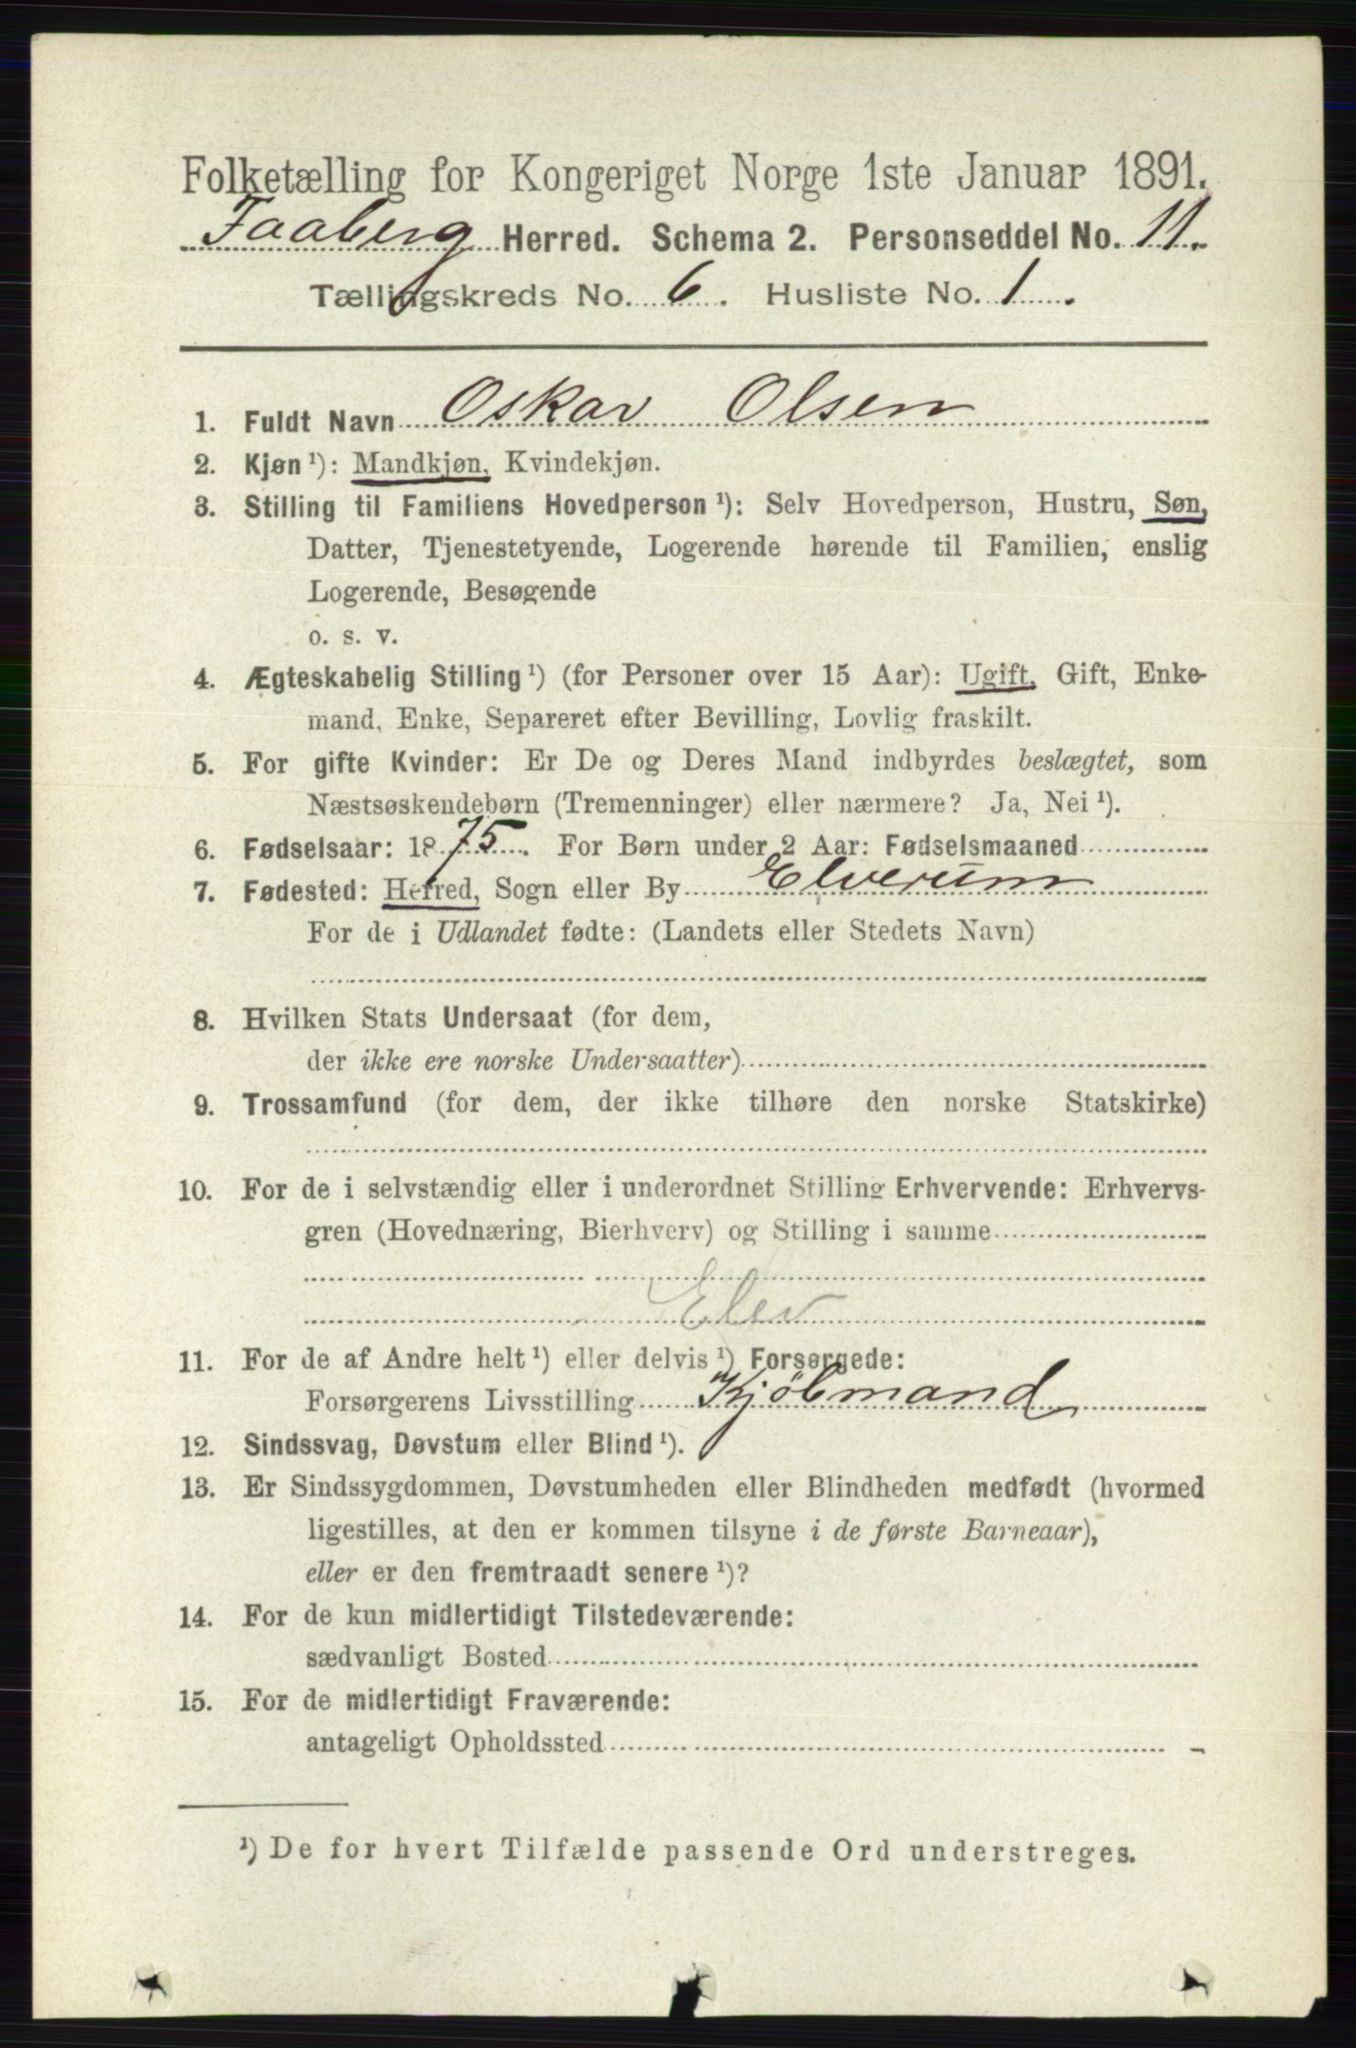 Folketælling for Kongeriget Norge 1ste Januar 1891.
Faaberg Herred. Schema 2. Personseddel No. 11.
Tællingskreds No. 6. Husliste No. 1.
1. Fuldt Navn Oskar Olsen
2. Kjøn ¹): Mandkjøn, Kvindekjøn.
3. Stilling til Familiens Hovedperson ¹): Selv Hovedperson, Hustru, Søn,
Datter, Tjenestetyende, Logerende hørende til Familien, enslig
Logerende, Besøgende
o. s. v.
4. Ægteskabelig Stilling ¹) (for Personer over 15 Aar): Ugift, Gift, Enke-
mand, Enke, Separeret efter Bevilling, Lovlig fraskilt.
5. For gifte Kvinder: Er De og Deres Mand indbyrdes beslægtet, som
Næstsøskendebørn (Tremenninger) eller nærmere? Ja, Nei ¹).
6. Fødselsaar: 1875. For Børn under 2 Aar: Fødselsmaaned
7. Fødested: Herred, Sogn eller By Elverum
For de i Udlandet fødte: (Landets eller Stedets Navn)
8. Hvilken Stats Undersaat (for dem,
der ikke ere norske Undersaatter)
9. Trossamfund (for dem, der ikke tilhøre den norske Statskirke)
10. For de i selvstændig eller i underordnet Stilling Erhvervende: Erhvervs-
gren (Hovednæring, Bierhverv) og Stilling i samme
Elev
11. For de af Andre helt ¹) eller delvis ¹) Forsørgede:
Forsørgerens Livsstilling Kjöbmand
12. Sindssvag, Døvstum eller Blind ¹).
13. Er Sindssygdommen, Døvstumheden eller Blindheden medfødt (hvormed
ligestilles, at den er kommen tilsyne i de første Barneaar),
eller er den fremtraadt senere ¹)?
14. For de kun midlertidigt Tilstedeværende:
sædvanligt Bosted
15. For de midlertidigt Fraværende:
antageligt Opholdssted
¹) De for hvert Tilfælde passende Ord understreges.